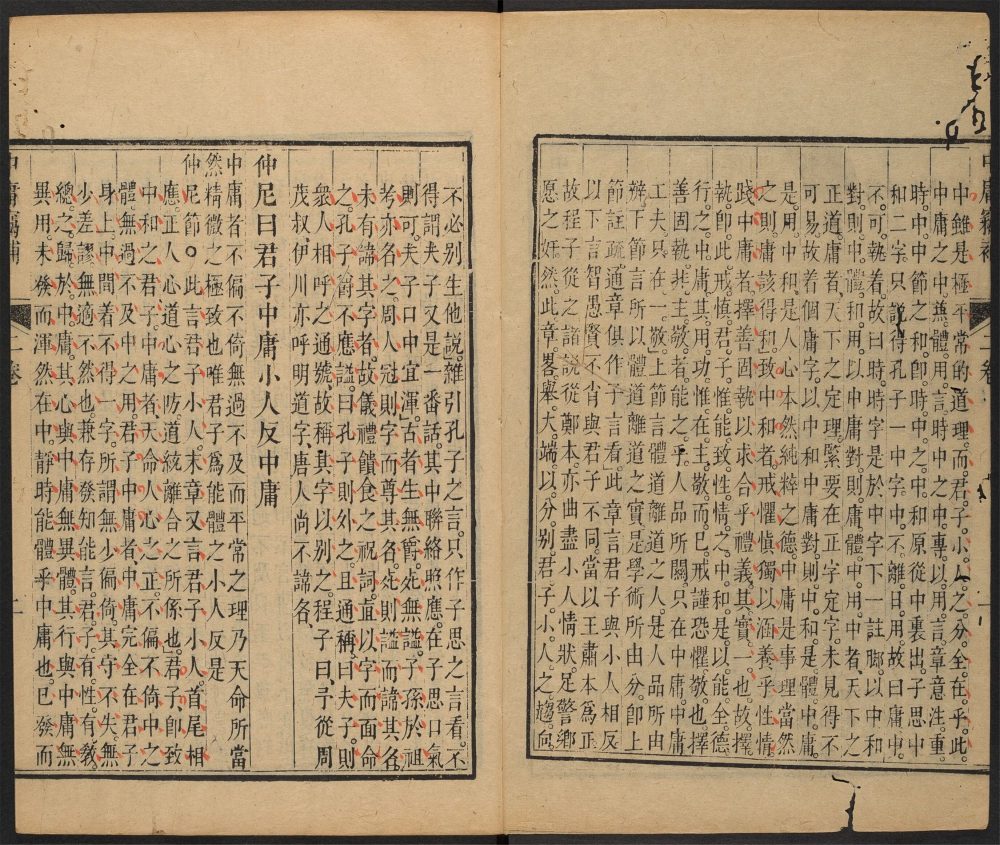 中雖是極平常的道理而君子小人之分全在乎此
中庸之中兼體用言時中之中專以用言章意注重
時中中節之和卽時中之中和原從中裏出曰思中
和二字只說得孔子一中字不離日用故曰庸中
不可執着故曰時時字是於中字下一註脚以中和
對則中體和用以中庸對則庸體中用中者天下之
正道庸者天下之定理緊要在正字定字未見得不
可易故着個庸字以中和對則中和是體中庸
是用中和是人心本然純粹之德中庸是事理當然
之則庸該得和致中和者戒懼愼獨以涵養乎性情
踐中庸者擇善固執以求合乎禮義其實一也故擇
執卽此戒愼君子惟能致性情之中和是以能全德
行之中庸其用功惟在主敬而已戒謹恐懼敬也擇
善固執共主敬敬者能之乎人品所關只在中庸中庸
工夫只在一敬上節言體道離道之人是人品所由
辨下節言所以體道離道之實是學術所由分卽上
節註疏通章俱作子言看此章言君子與小人相反
以下言智愚賢不肖與君子不同當以王肅本爲正
故程子從之諸說從鄭本亦曲盡小人情狀足警鄉
愿之奸然此章畧舉大端以分別君子小人之趨向
不必別生他說雜引孔子之言只作子思之言看不
得謂夫子又是一番話其中聯絡照應在子思口氣
則可夫子口中宜渾古者生無爵死無謚子孫於祖
考亦名之周人冠則字而尊其名死則謚而諱其名
未有諱其字者故儀禮饋食之祝詞直以字而面命
之孔子爵不應謚曰孔子則外之且通稱曰夫子則
衆人相呼之通號故稱其字以別之程子曰予從周
茂叔伊川亦呼明道字唐人尚不諱名
仲尼曰君子中庸小人反中庸
中庸者不偏不倚無過不及而平常之理乃天命所當
然精微之極致也唯君子爲能體之小人反是
仲尼節○此言君子小人末章又言君子小人首尾相
應正人心道心之防道統離合之所係也君子卽致
中和之君子中庸者天命人心之正不偏不倚中之
體無過不及中之用君子中庸者中庸完全在君子
身上中間着不得一字所謂無少偏倚其守不失無
少差謬無適不然也兼存發知能言君子有性有教
總之歸於中庸其心與中庸無異體其行與中庸無
異用未發而渾然在中靜時能體乎中庸也已發而